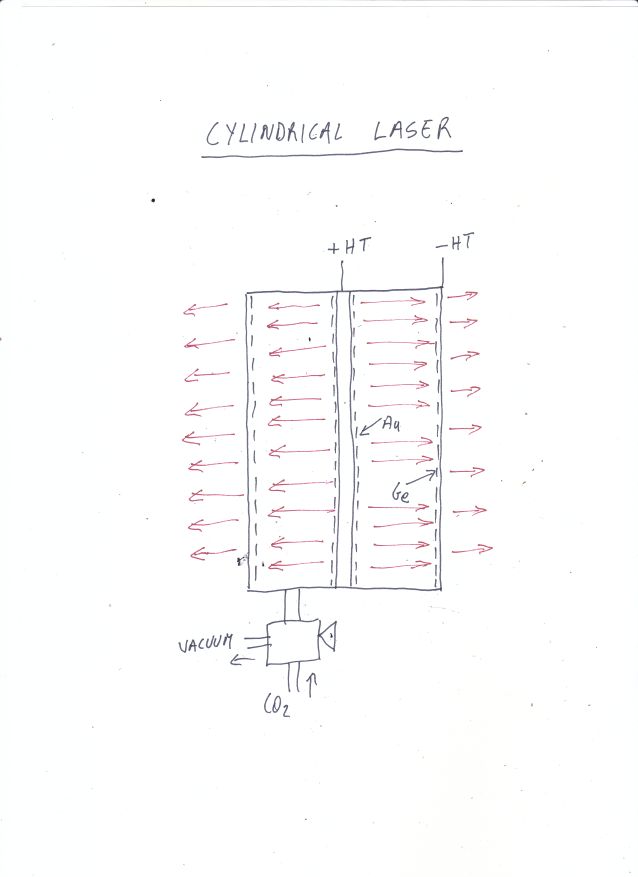 CYLINDRICAL LASER
+HT
-HT
Au
Ge
VACUUM
CO2